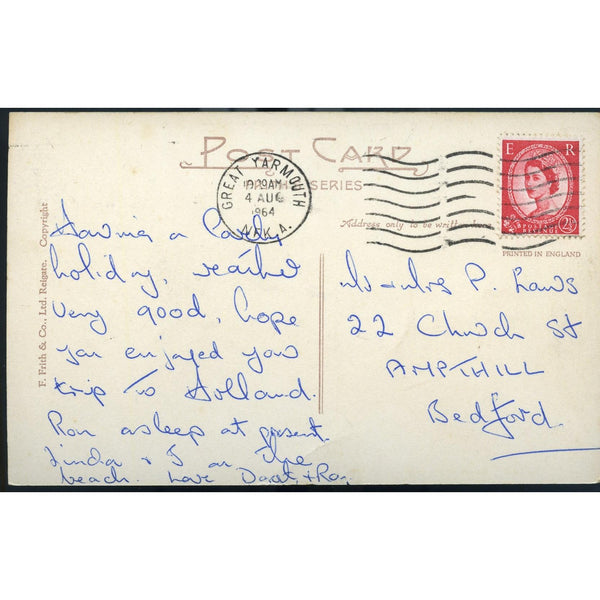 POST CARD
FRITH'S SERIES
GREAT YARMOUTH
10.30AM
4 AUG
1964
NFK. A.
E R
POSTAGE
REVENUE
2½D
Address only to be written here
PRINTED IN ENGLAND
F. Frith & Co., Ltd. Reigate. Copyright
Having a lovely
holiday, weather
very good, hope
you enjoyed your
trip to Holland.
Ron asleep at present.
Linda & I on the
beach. Love & Ron
Mr & Mrs P. Laws
22 Church St
AMPTHILL
Bedford.